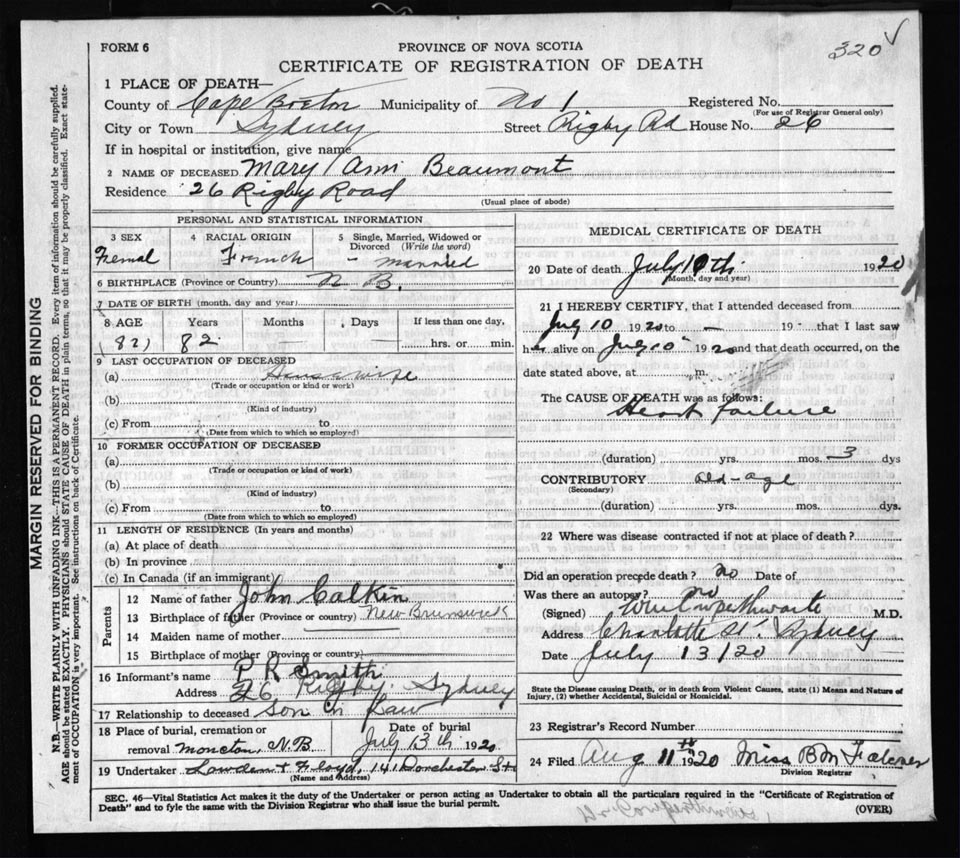 FORM 6
PROVINCE OF NOVA SCOTIA
320 ✓
CERTIFICATE OF REGISTRATION OF DEATH
1 PLACE OF DEATH—
County of Cape Breton Municipality of No 1 Registered No.
(For use of Registrar General only)
City or Town Sydney Street Rigby Rd House No. 26
If in hospital or institution, give name
2 NAME OF DECEASED Mary Ann Beaumont
Residence 26 Rigby Road
(Usual place of abode)
PERSONAL AND STATISTICAL INFORMATION
3 SEX 4 RACIAL ORIGIN 5 Single, Married, Widowed or Divorced (Write the word)
Femal French - married
6 BIRTHPLACE (Province or Country) N B.
7 DATE OF BIRTH (month, day and year)
8 AGE Years Months Days If less than one day,
(82) 82 hrs. or min.
9 LAST OCCUPATION OF DECEASED
(a) Housewife
(Trade or occupation or kind or work)
(b)
(Kind of industry)
(c) From to
(Date from which to which so employed)
10 FORMER OCCUPATION OF DECEASED
(a)
(Trade or occupation or kind of work)
(b)
(Kind of industry)
(c) From to
(Date from which to which so employed)
11 LENGTH OF RESIDENCE (In years and months)
(a) At place of death
(b) In province
(c) In Canada (if an immigrant)
Parents
12 Name of father John Calkin
13 Birthplace of father (Province or country) New Brunswick
14 Maiden name of mother
15 Birthplace of mother (Province or country)
16 Informant's name P R Smith
Address 26 Rigby, Sydney
17 Relationship to deceased Son in Law
18 Place of burial, cremation or removal Moncton, N.B Date of burial July 13th 1920
19 Undertaker Lowden & Floyd, 141 Dorchester St
(Name and Address)
MEDICAL CERTIFICATE OF DEATH
20 Date of death July 10th 1920
(Month, day and year)
21 I HEREBY CERTIFY, that I attended deceased from
July 10 1920 to — 19 that I last saw
h alive on July 10" 1920 and that death occurred, on the
date stated above, at m.
The CAUSE OF DEATH was as follows:
Heart failure
(duration) yrs. mos. 3 dys
CONTRIBUTORY old-age
(Secondary)
(duration) yrs. mos. dys.
22 Where was disease contracted if not at place of death?
Did an operation precede death? no Date of
Was there an autopsy? no
(Signed) M.D.
Address Charlotte St. Sydney
Date July 13/20
State the Disease causing Death, or in death from Violent Causes, state (1) Means and Nature of
Injury, (2) whether Accidental, Suicidal or Homicidal.
23 Registrar's Record Number
24 Filed Aug 11th 1920 Miss B M Falconer
Division Registrar
SEC. 46—Vital Statistics Act makes it the duty of the Undertaker or person acting as Undertaker to obtain all the particulars required in the "Certificate of Registration of
Death" and to fyle the same with the Division Registrar who shall issue the burial permit.
(OVER)
MARGIN RESERVED FOR BINDING
N.B.—WRITE PLAINLY WITH UNFADING INK—THIS IS A PERMANENT RECORD. Every item of information should be carefully supplied.
AGE should be stated EXACTLY. PHYSICIANS should STATE CAUSE OF DEATH in plain terms, so that it may be properly classified. Exact state-
ment of OCCUPATION is very important. See instructions on back of Certificate.